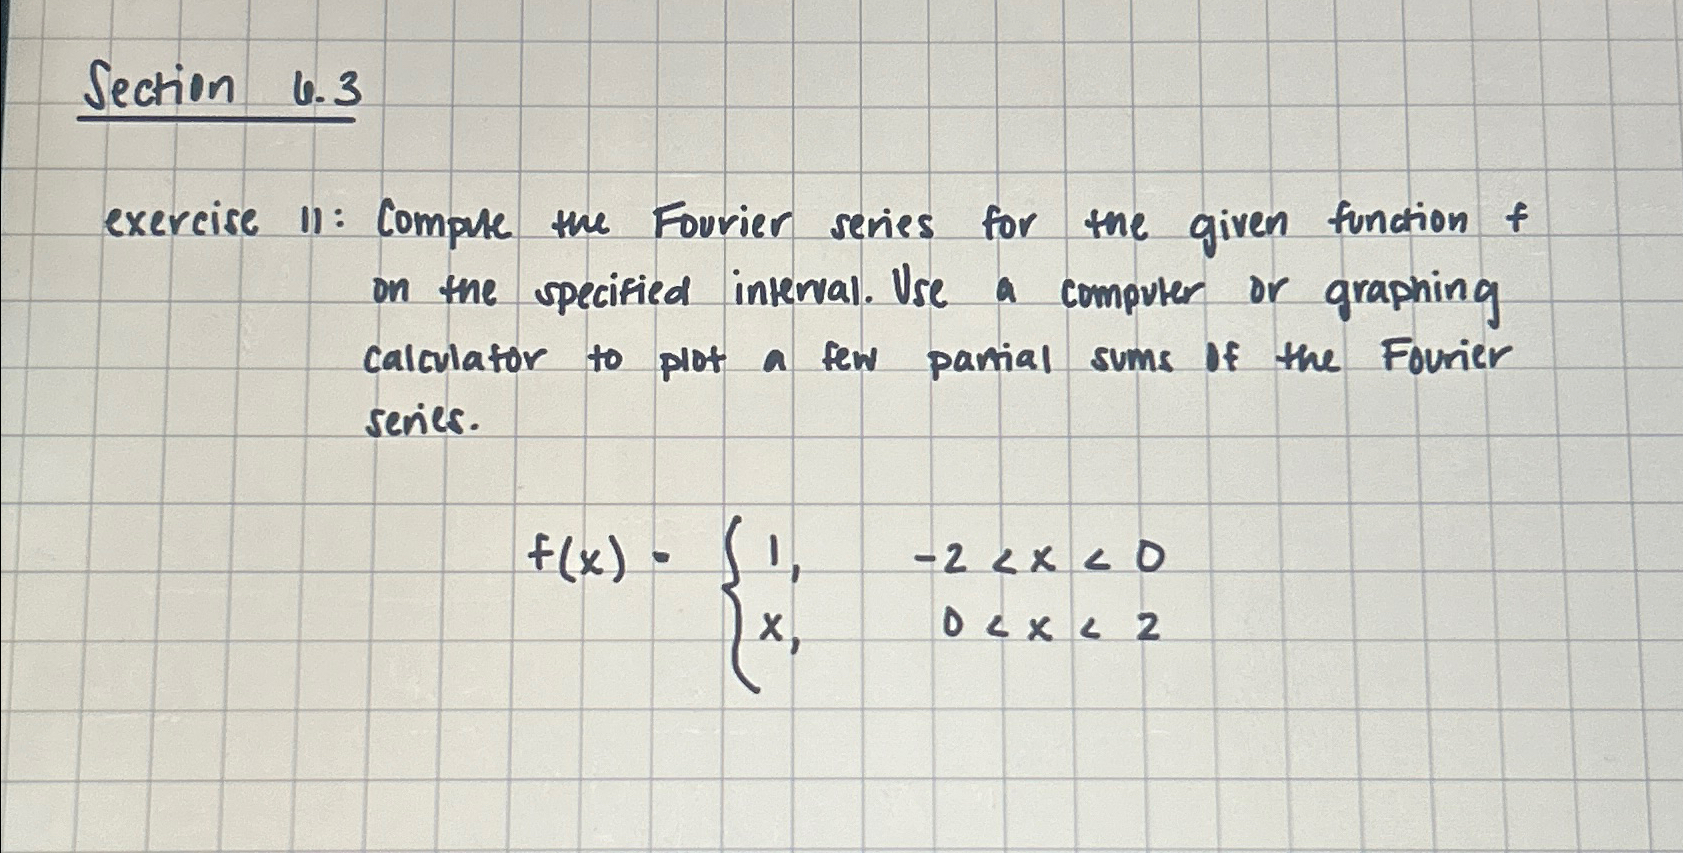 Section 6.3
exercise 11: Compute the Fourier series for the given function f
on the specified interval. Use a computer or graphing
calculator to plot a few partial sums of the Fourier
series.
f(x) = { 1, -2 < x < 0
x, 0 < x < 2